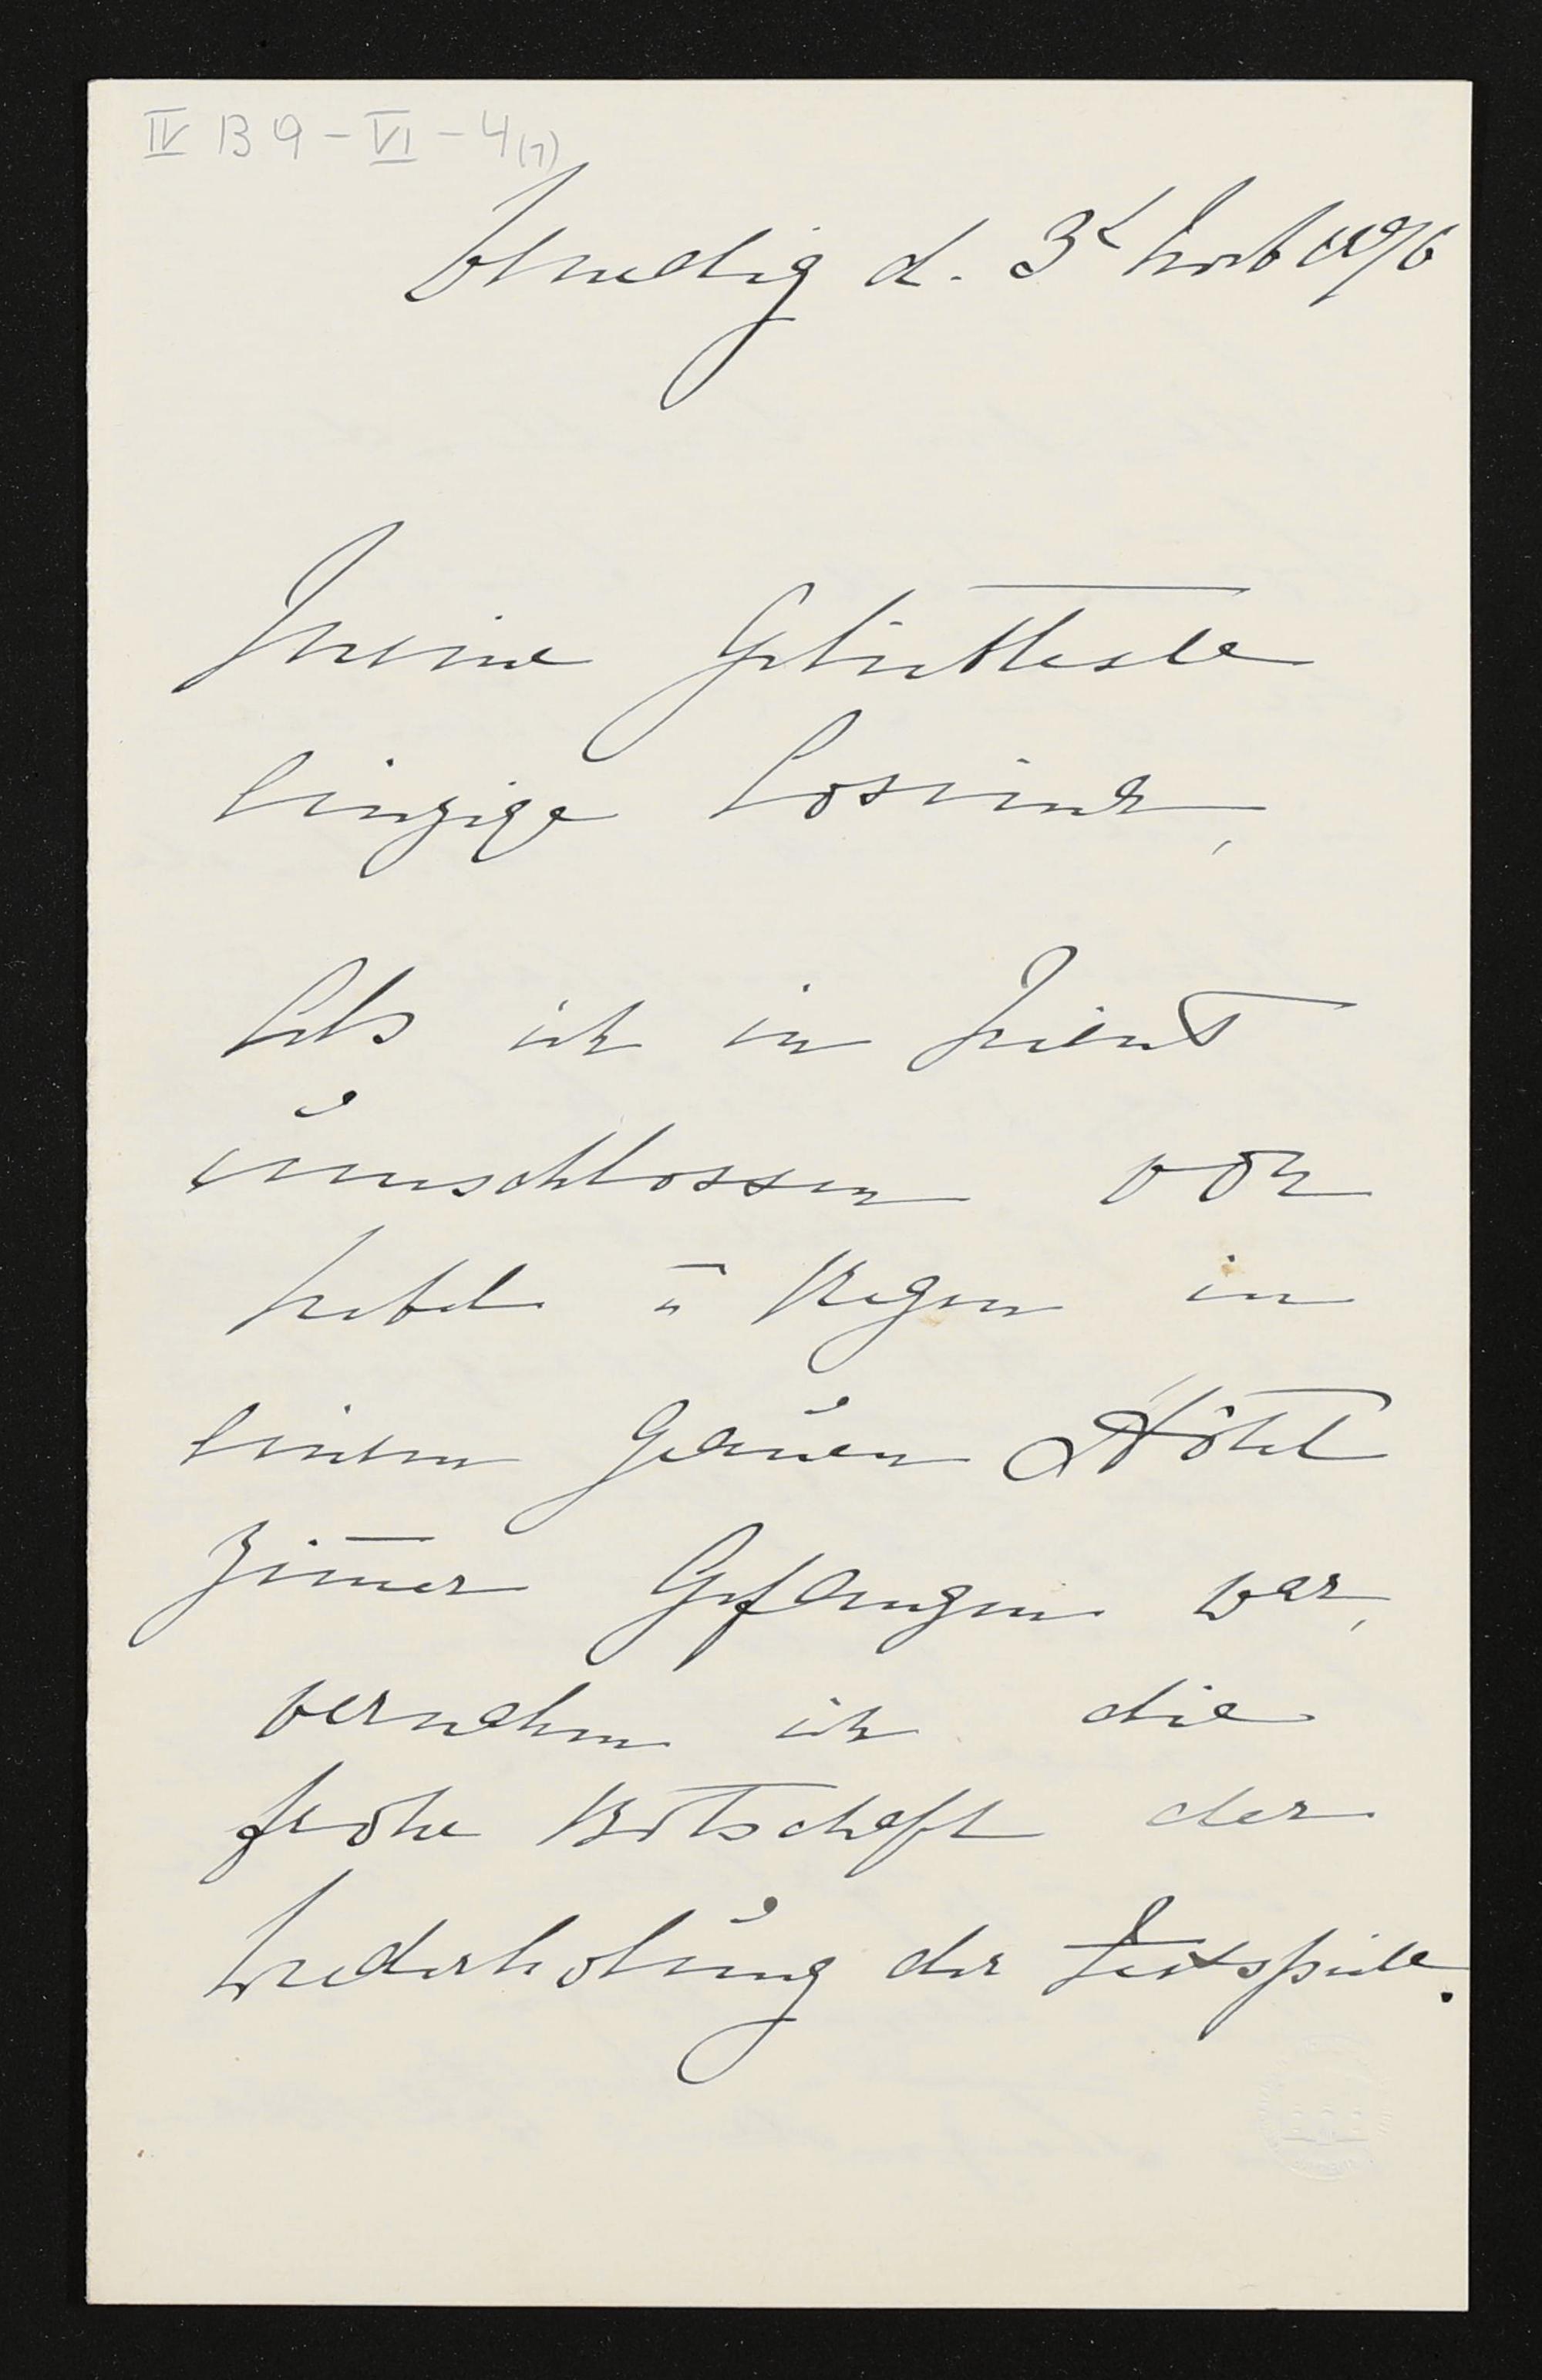 IV B 9 - VI - 4 (1)
Venedig d. 3t Nov 1896
Meine Geliebteste
Einzige Cosima,
Als ich in Trient
umschlossen von
Nebel u Regen in
einem grauen Hôtel
Zimer Gefangen war,
vernahm ich die
frohe Botschaft der
Wiederholung der Festspiele.